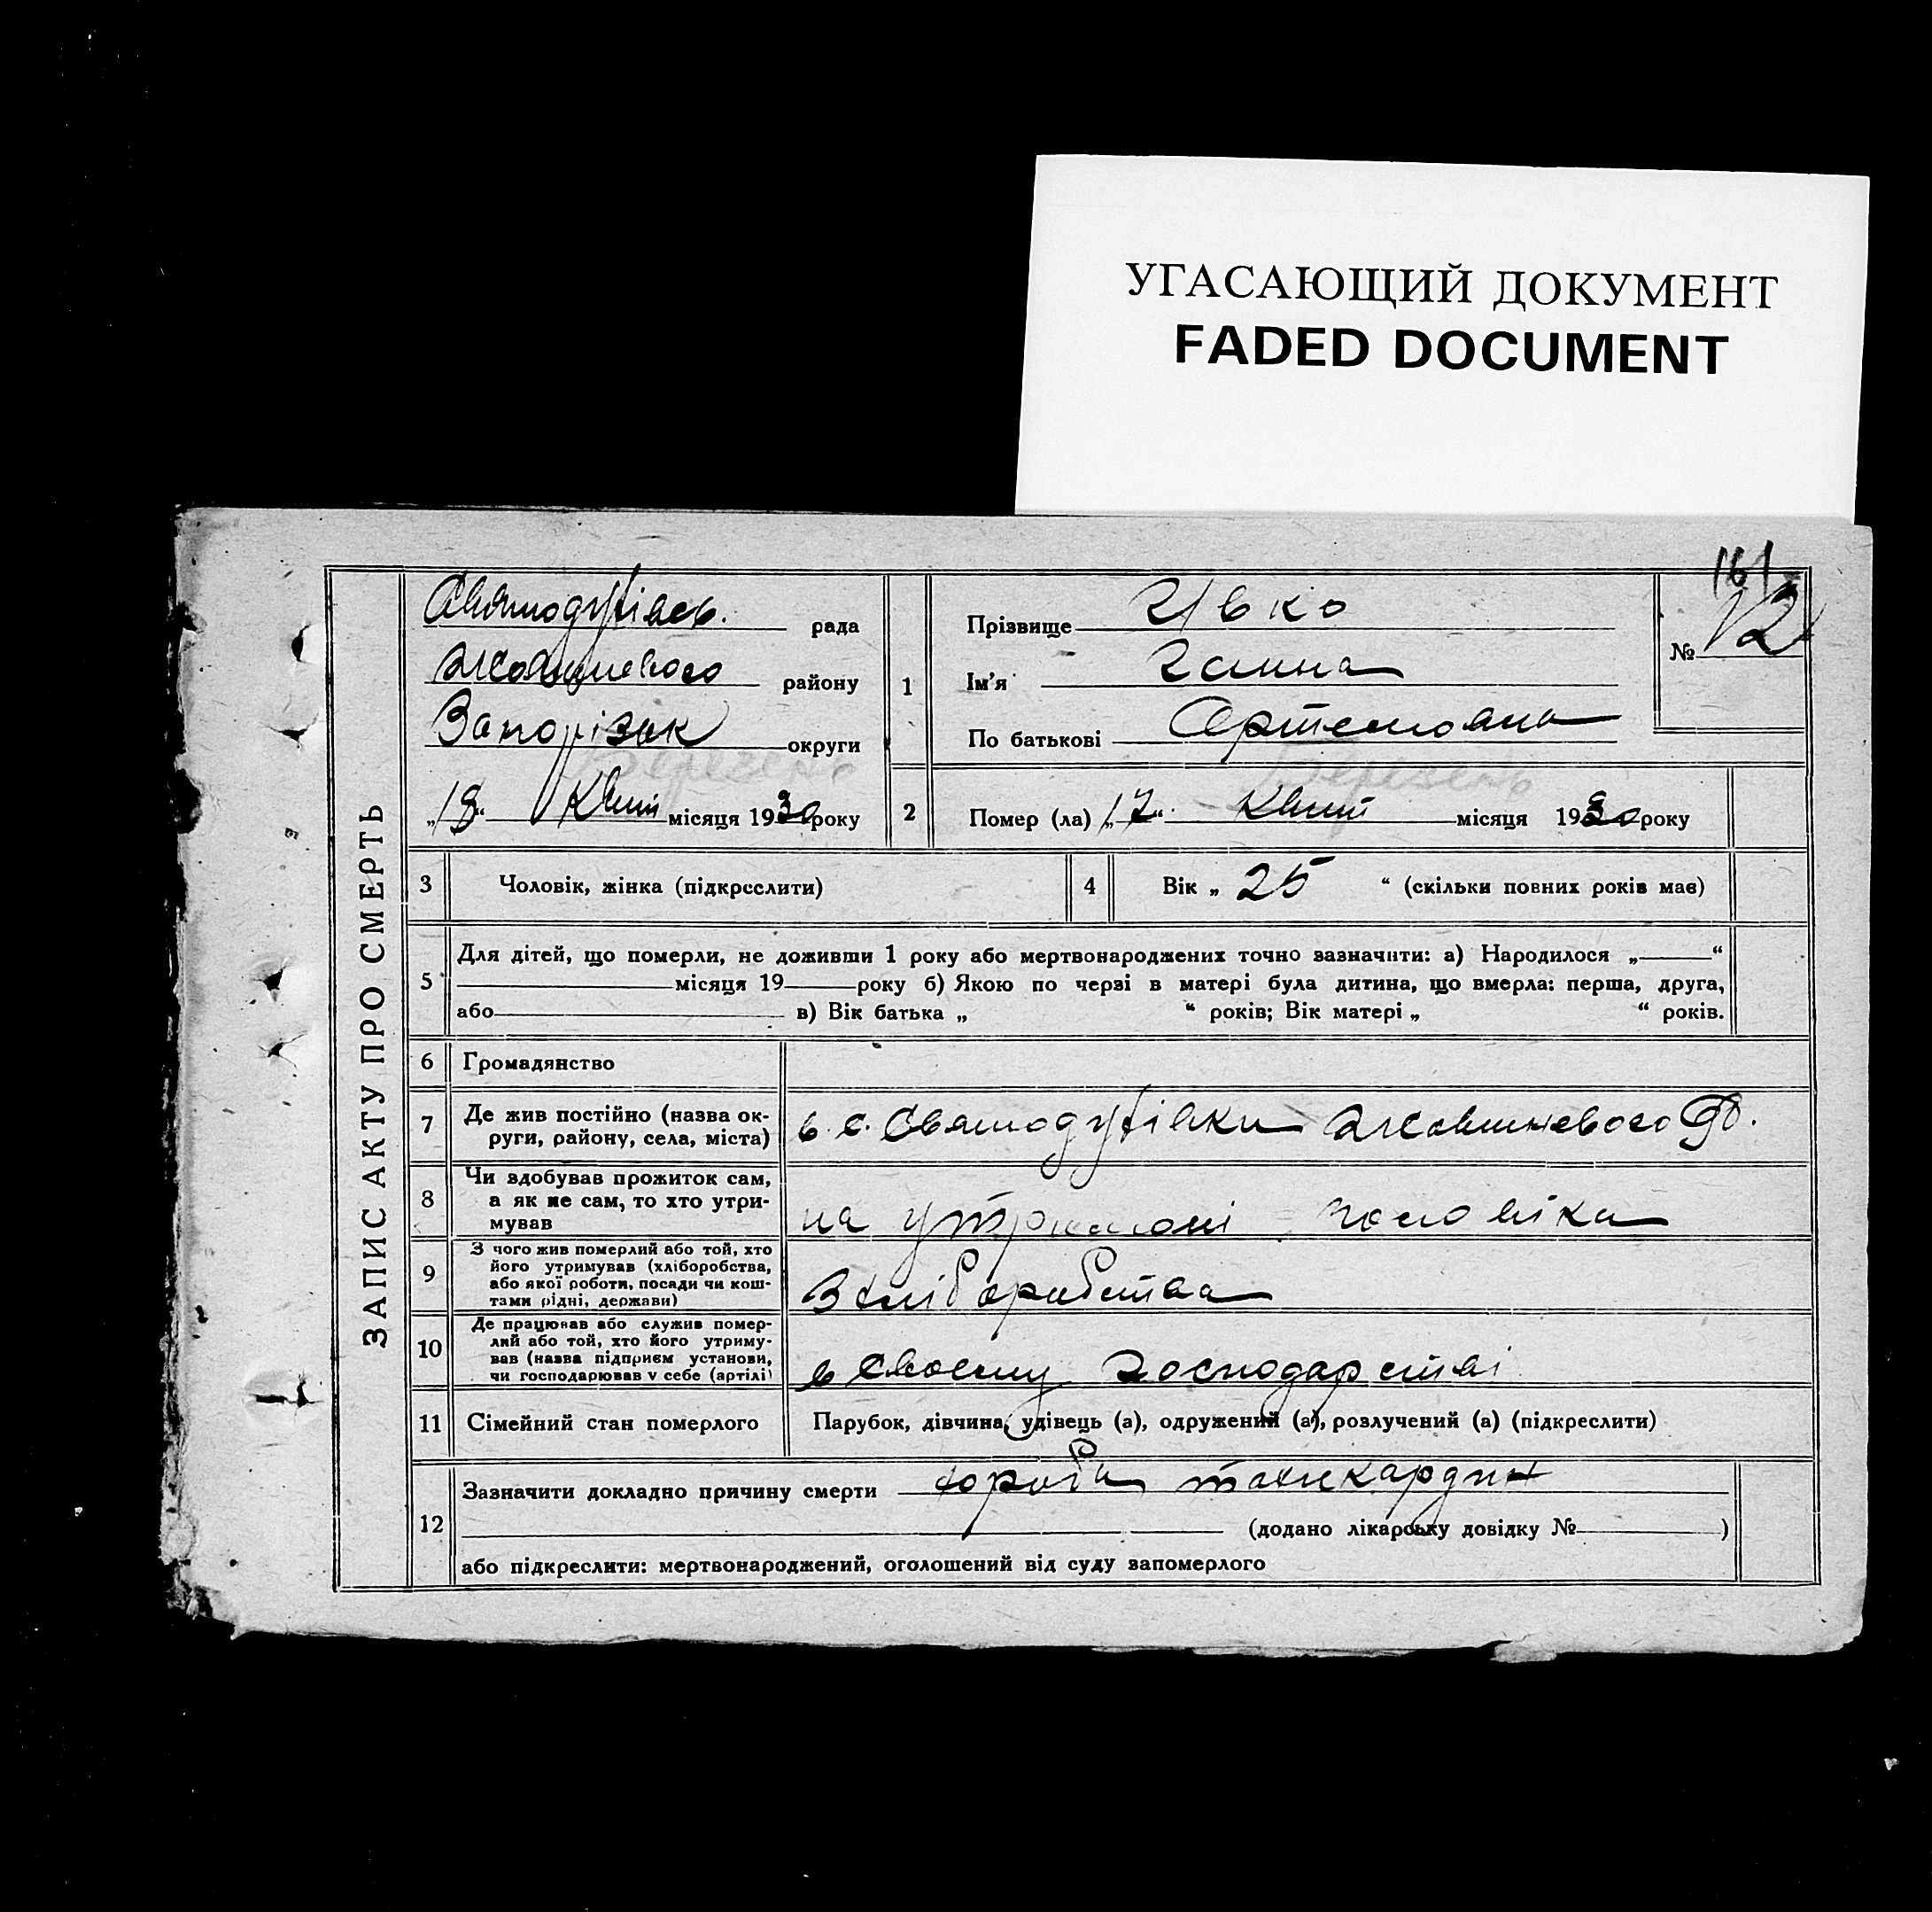 УГАСАЮЩИЙ ДОКУМЕНТ
FADED DOCUMENT
161
ЗАПИС АКТУ ПРО СМЕРТЬ
Святодухівсь. рада
Жовтневого району
Запорізьк округи
Березень
„18“ Квіт місяця 1930 року
1
Прізвище Ивко
Ім'я Ганна
По батькові Артемовна
№ 12
2
Березень
Помер (ла) „17“ Квіт місяця 1930 року
3 Чоловік, жінка (підкреслити)
4 Вік „ 25 “ (скільки повних років має)
5
Для дітей, що померли, не доживши 1 року або мертвонароджених точно зазначити: а) Народилося „ “
місяця 19 року б) Якою по черзі в матері була дитина, що вмерла: перша, друга,
або в) Вік батька „ “ років; Вік матері „ “ років.
6 Громадянство
7 Де жив постійно (назва ок-
руги, району, села, міста)
в с. Святодухівки Жовтневого р.
8 Чи здобував прожиток сам,
а як не сам, то хто утри-
мував
на утриманні чоловіка
9 З чого жив померлий або той, хто
його утримував (хліборобства,
або якої роботи, посади чи кош-
тами рідні, держави)
З хліборобства
10 Де працював або служив помер-
лий або той, хто його утриму-
вав (назва підприєм установи,
чи господарював у себе (артілі)
в своєму господарстві
11 Сімейний стан померлого
Парубок, дівчина, удівець (а), одружений (а), розлучений (а) (підкреслити)
12
Зазначити докладно причину смерти хороба тахикардии
(додано лікарську довідку № )
або підкреслити: мертвонароджений, оголошений від суду запомерлого